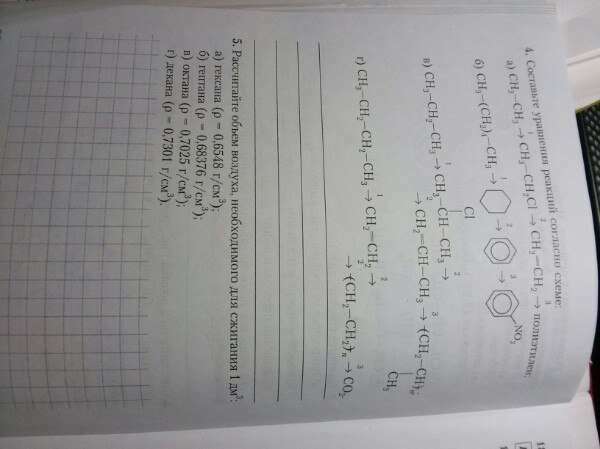 4. Составьте уравнения реакций согласно схеме:
а) CH₃—CH₃ →¹ CH₃—CH₂Cl →² CH₂=CH₂ →³ полиэтилен;
б) CH₃—(CH₂)₄—CH₃ →¹ →² →³ NO₂
Cl
в) CH₃—CH₂—CH₃ →¹ CH₃—CH—CH₃ →²
→ CH₂=CH—CH₃ →³ (—CH₂—CH—)ₙ;
CH₃
г) CH₃—CH₂—CH₂—CH₃ →¹ CH₂=CH₂ →²
→ (—CH₂—CH₂—)ₙ →³ CO₂.
5. Рассчитайте объем воздуха, необходимого для сжигания 1 дм³:
а) гексана (ρ = 0,6548 г/см³);
б) гептана (ρ = 0,68376 г/см³);
в) октана (ρ = 0,7025 г/см³);
г) декана (ρ = 0,7301 г/см³).